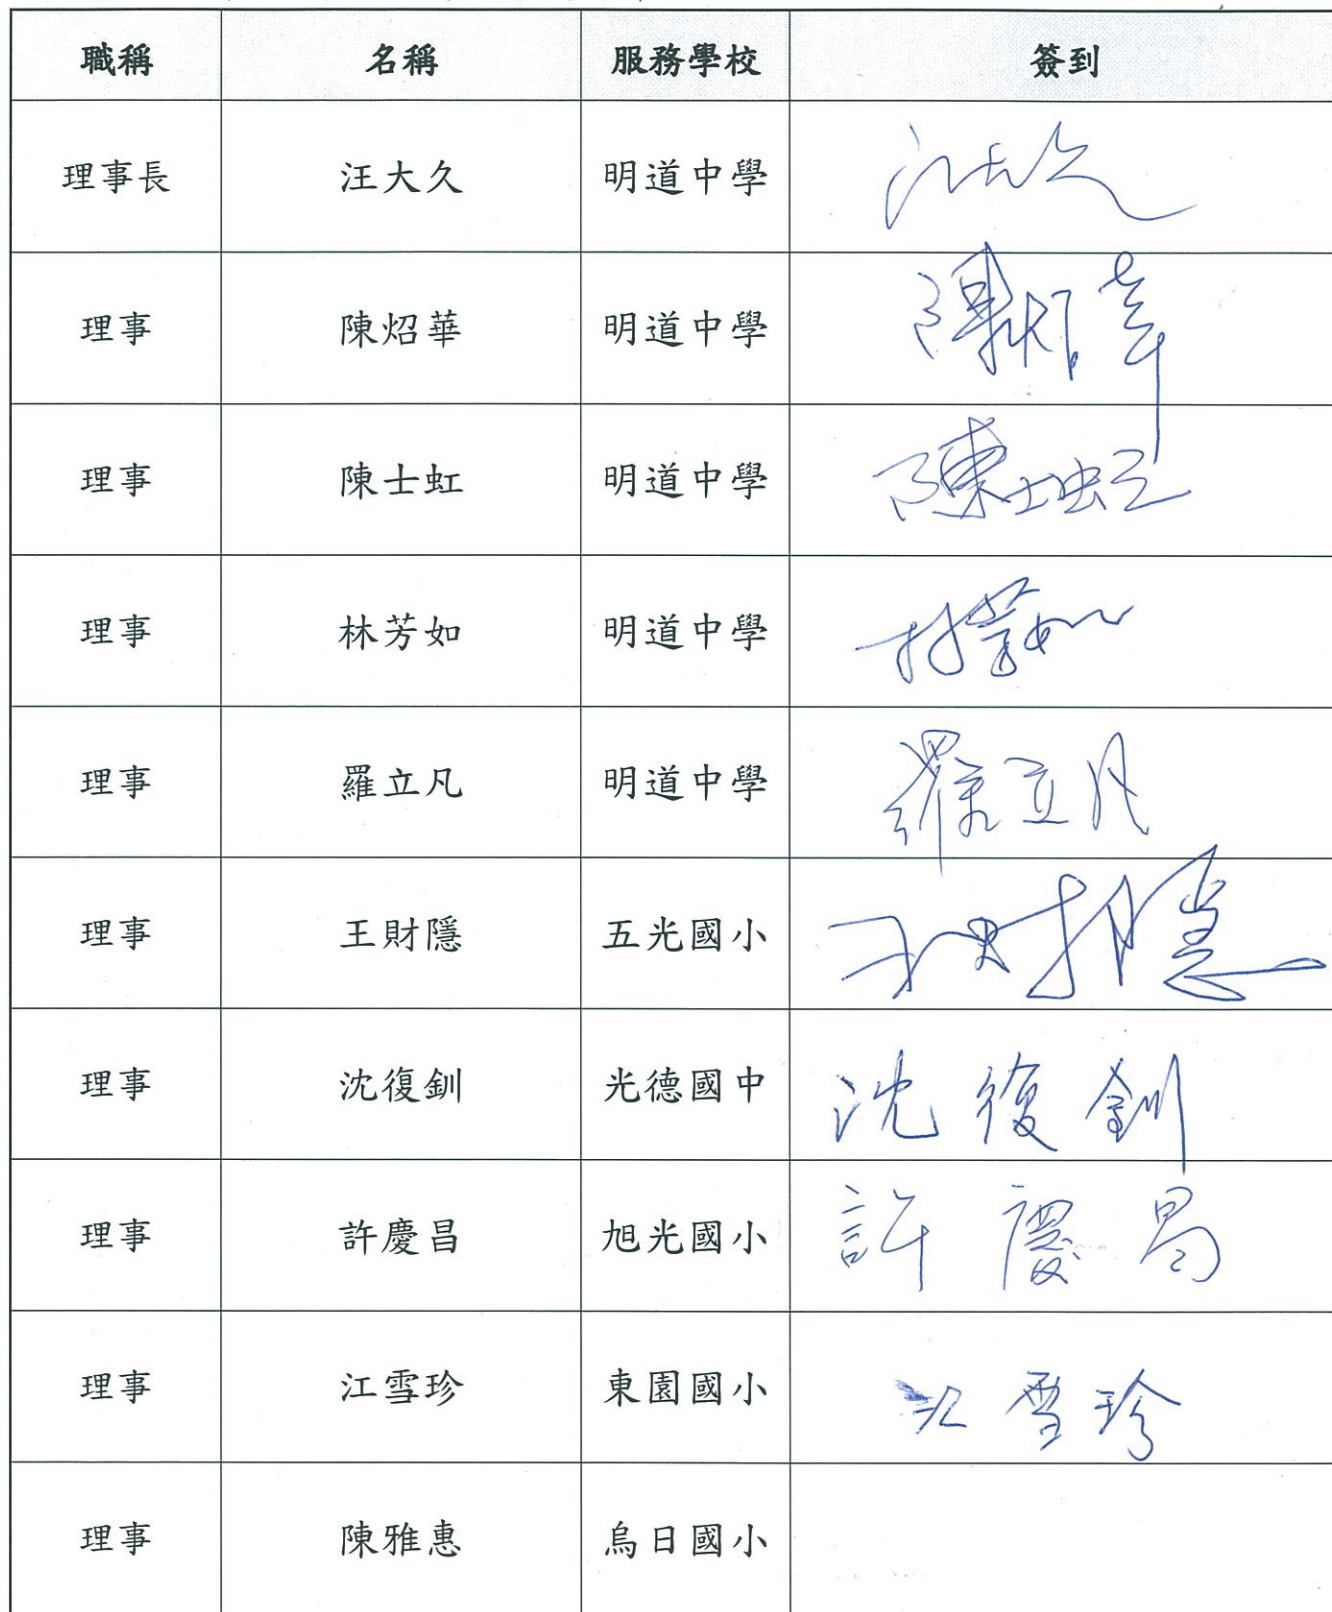 職稱 名稱 服務學校 簽到
理事長 汪大久 明道中學 汪大久
理事 陳炤華 明道中學 陳炤華
理事 陳士虹 明道中學 陳士虹
理事 林芳如 明道中學 林芳如
理事 羅立凡 明道中學 羅立凡
理事 王財隱 五光國小 王財隱
理事 沈復釧 光德國中 沈復釧
理事 許慶昌 旭光國小 許慶昌
理事 江雪珍 東園國小 江雪珍
理事 陳雅惠 烏日國小